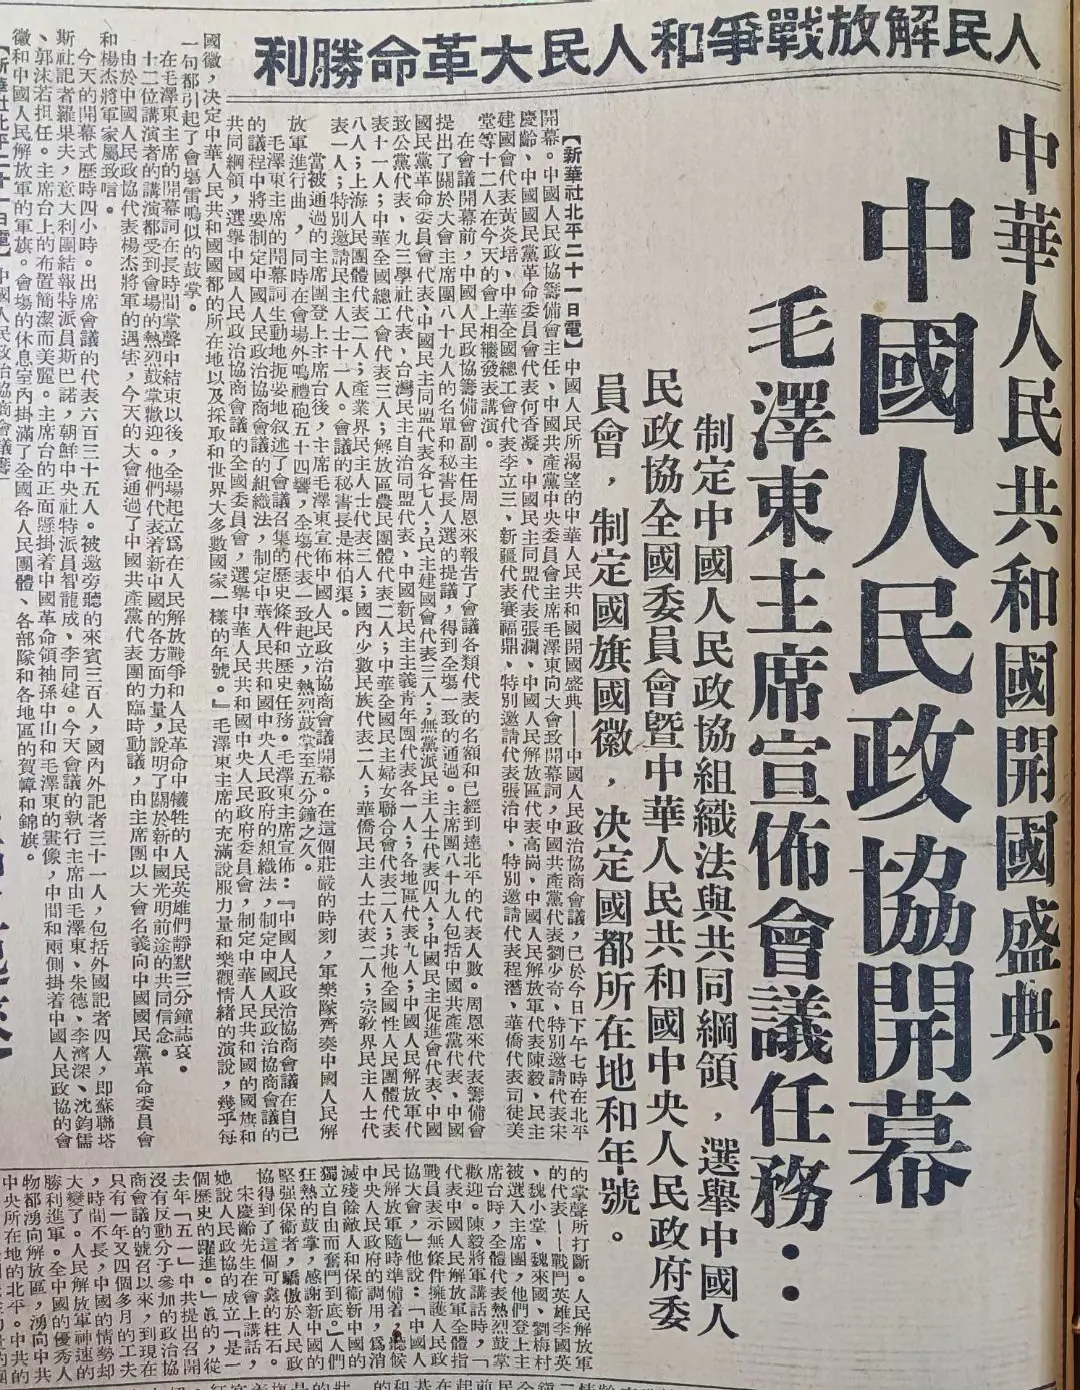 人民解放戰爭和人民大革命勝利
中華人民共和國開國盛典
中國人民政協開幕
毛澤東主席宣佈會議任務：
制定中國人民政協組織法與共同綱領，選舉中國人
民政協全國委員會暨中華人民共和國中央人民政府委
員會，制定國旗國徽，决定國都所在地和年號。
【新華社北平二十一日電】中國人民所渴望的中華人民共和國開國盛典——中國人民政治協商會議，已於今日下午七時在北平
開幕。中國人民政協籌備會主任、中國共產黨中央委員會主席毛澤東向大會致開幕詞，中國共產黨代表劉少奇、特別邀請代表宋
慶齡、中國國民黨革命委員會代表何香凝、中國民主同盟代表張瀾、中國人民解放區代表高崗、中國人民解放軍代表陳毅、民主
建國會代表黃炎培、中華全國總工會代表李立三、新疆代表賽福鼎、特別邀請代表張治中、特別邀請代表程潛、華僑代表司徒美
堂等十二人在今天的會上相繼發表講演。
在會議開幕前，中國人民政協籌備會副主任周恩來報告了會議各類代表的名額和已經到達北平的代表人數。周恩來代表籌備會
提出了關於大會主席團八十九人的名單和秘書長人選的提議，得到全場一致的通過。主席團八十九人包括中國共產黨代表、中國
國民黨革命委員會代表、中國民主同盟代表各七人；民主建國會代表三人；無黨派民主人士代表四人；中國民主促進會代表、中國
致公黨代表、九三學社代表、台灣民主自治同盟代表、中國新民主主義青年團代表各一人；各地區代表九人；中國人民解放軍代
表十一人；中華全國總工會代表三人；解放區農民團體代表二人；中華全國民主婦女聯合會代表二人；其他全國性人民團體代表
八人；上海人民團體代表二人；產業界民主人士代表三人；國內少數民族代表二人；華僑民主人士代表二人；宗教界民主人士代
表一人；特別邀請民主人士十一人。會議的秘書長是林伯渠。
當被通過的主席團登上主席台後，主席毛澤東宣佈中國人民政治協商會議開幕。在這個莊嚴的時刻，軍樂隊齊奏中國人民解
放軍進行曲，同時在會場外鳴禮砲五十四響，全場代表一致起立，熱烈鼓掌至五分鐘之久。
毛澤東主席的開幕詞生動地扼要地叙述了會議召集的歷史條件和歷史任務。毛澤東主席宣佈：『中國人民政治協商會議在自己
的議程中將要制定中國人民政治協商會議的組織法，制定中華人民共和國中央人民政府的組織法，制定中國人民政治協商會議的
共同綱領，選舉中國人民政治協商會議的全國委員會，選舉中華人民共和國中央人民政府委員會，制定中華人民共和國的國旗和
國徽，决定中華人民共和國國都的所在地以及採取和世界大多數國家一樣的年號。』毛澤東主席的充滿說服力量和樂觀情緒的演說，幾乎每
一句都引起了會場雷鳴似的鼓掌。
在毛澤東主席的開幕詞在長時間掌聲中結束以後，全場起立爲在人民解放戰爭和人民革命中犧牲的人民英雄們靜默三分鐘誌哀。
十二位講演者的講演都受到會場的熱烈鼓掌歡迎。他們代表着新中國的各方面力量，說明了關於新中國光明前途的共同信念。
由於中國人民政協代表楊杰將軍的遇害，今天的大會通過了中國共產黨代表團的臨時動議，由主席團以大會名義向中國國民黨革命委員會
和楊杰將軍家屬致唁。
今天的開幕式歷時四小時。出席會議的代表六百三十五人。被邀旁聽的來賓三百人，國內外記者三十一人，包括外國記者四人，即蘇聯塔
斯社記者羅果夫，意大利團結報特派員斯巴諾，朝鮮中央社特派員智龍成、李同建。今天會議的執行主席由毛澤東、朱德、李濟深、沈鈞儒
、郭沫若担任。主席台上的布置簡潔而美麗。主席台的正面懸掛着中國革命領袖孫中山和毛澤東的畫像，中間和兩側掛着中國人民政協的會
徽和中國人民解放軍的軍旗。會場的休息室內掛滿了全國各人民團體、各部隊和各地區的賀嶂和錦旗。
【新華社北平二十一日電】中國人民政治協商會議籌
的掌聲所打斷。人民解放軍
的代表——戰鬥英雄李國英
、魏小堂、魏來國、劉梅村
被選入主席團，他們登上主
席台時，全體代表熱烈鼓掌
歡迎。陳毅將軍講話時，「
代表中國人民解放軍全體指
戰員表示無條件擁護人民政
協大會」，他說：「中國人
民解放軍隨時準備着，聽候
中央人民政府的調用，爲消
滅殘餘敵人和保衞新中國的
獨立自由而奮鬥到底。」人們
狂熱的鼓掌，感謝新中國的
堅強保衞者，驕傲於人民政
協得到了這個可靠的柱石。
宋慶齡先生在會上講話，
她說人民政協的成立「是一
個歷史的躍進。」眞的，從
去年「五一」中共提出召開
沒有反動分子參加的政治協
商會議的號召以來，到現在
只有一年又四個多月的工夫
，時間不長，中國的情勢却
大變了。人民解放軍神速的
勝利進軍。全中國的優秀人
物都湧向解放區，湧向中共
中央所在地的北平。中共的